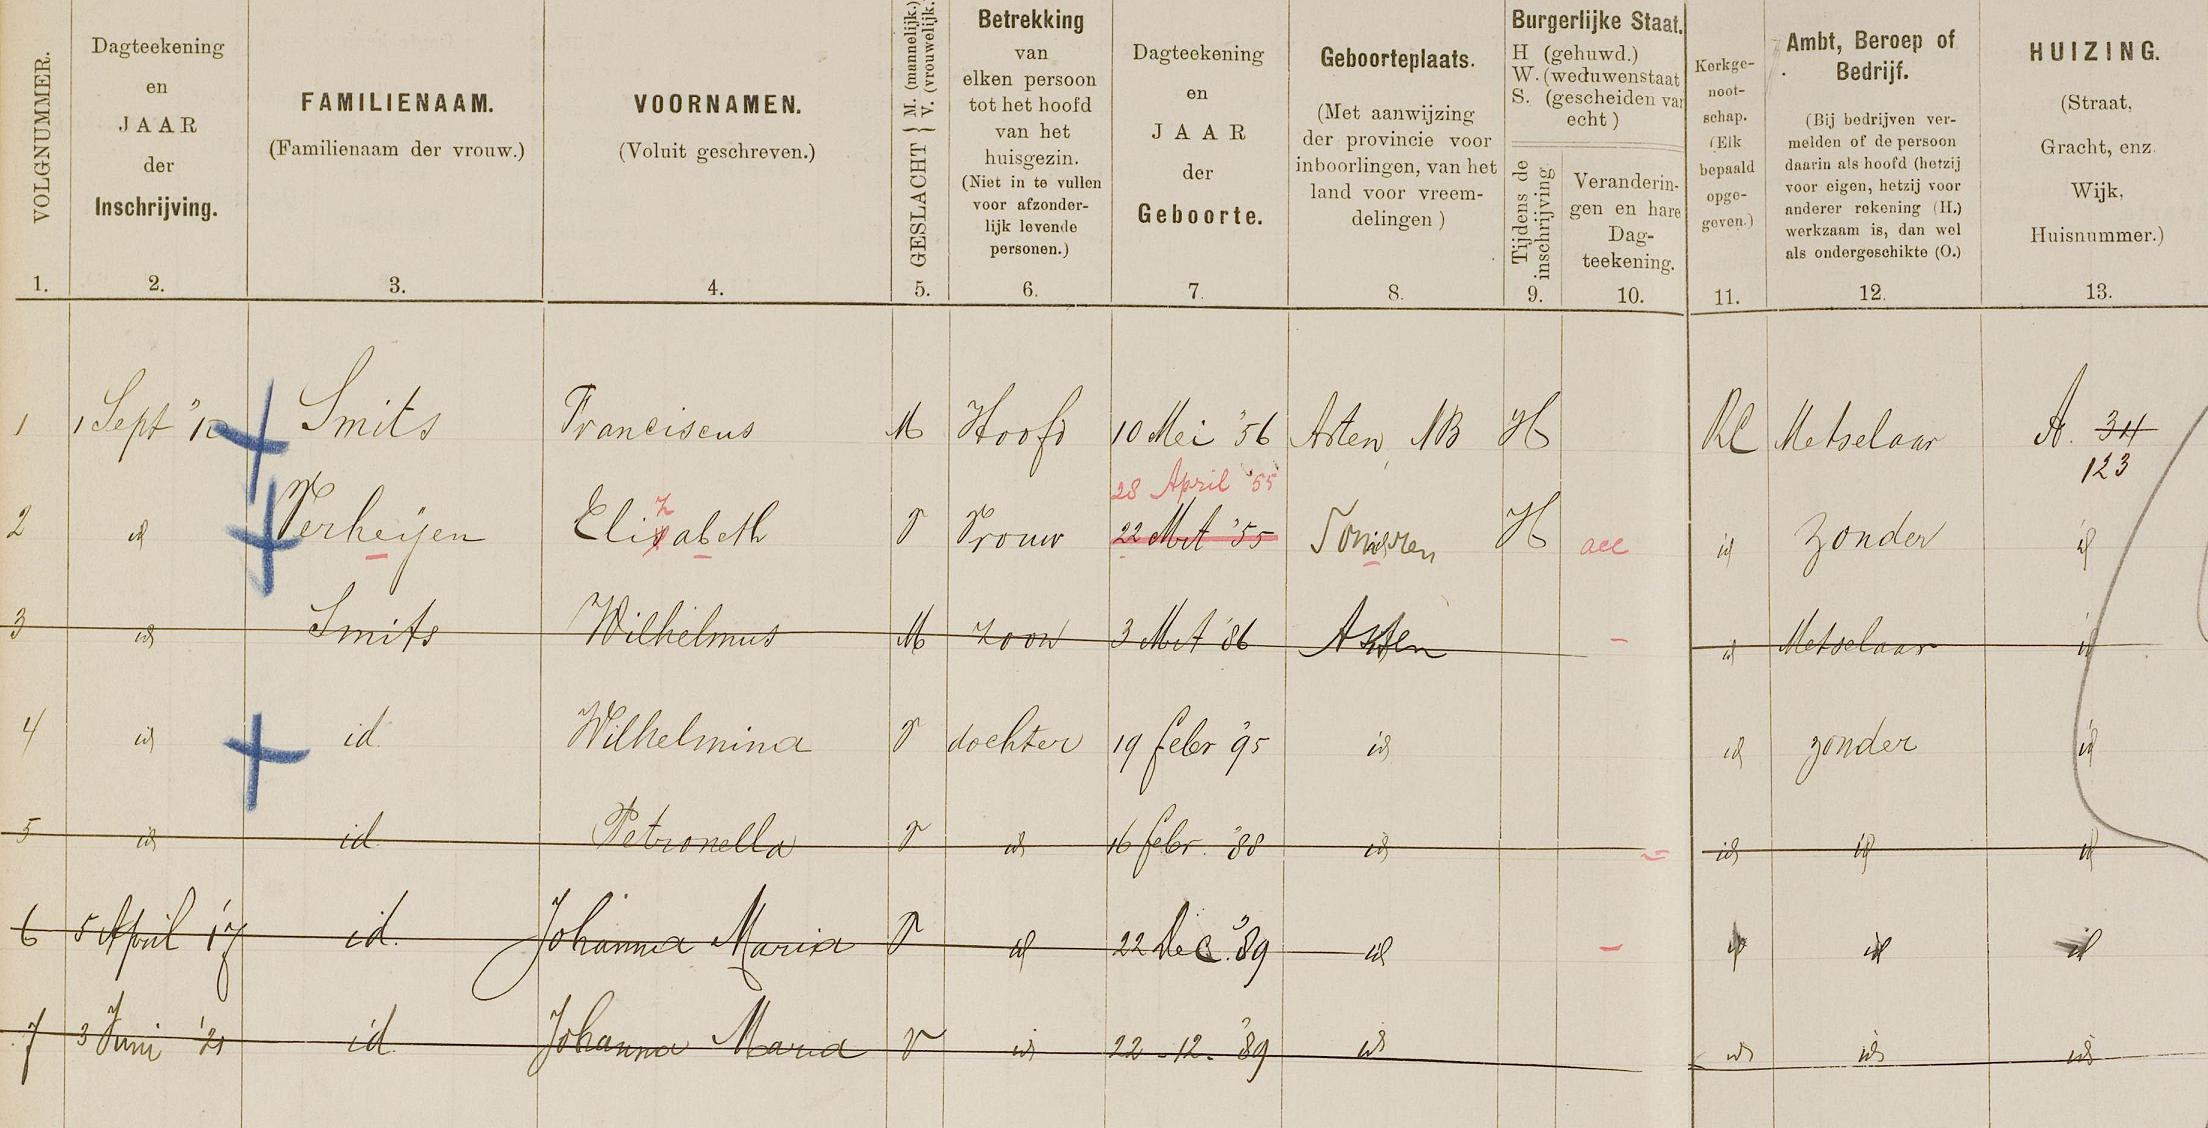 VOLGNUMMER.
Dagteekening
en
JAAR
der
Inschrijving.
FAMILIENAAM.
(Familienaam der vrouw.)
VOORNAMEN.
(Voluit geschreven.)
GESLACHT { M. (mannelijk.) V. (vrouwelijk.)
Betrekking
van
elken persoon
tot het hoofd
van het
huisgezin.
(Niet in te vullen
voor afzonder-
lijk levende
personen.)
Dagteekening
en
JAAR
der
Geboorte.
Geboorteplaats.
(Met aanwijzing
der provincie voor
inboorlingen, van het
land voor vreem-
delingen)
Burgerlijke Staat.
H (gehuwd.)
W. (weduwenstaat
S. (gescheiden van
echt)
Tijdens de
inschrijving
Veranderin-
gen en hare
Dag-
teekening.
Kerkge-
noot-
schap.
(Elk
bepaald
opge-
geven.)
Ambt, Beroep of
Bedrijf.
(Bij bedrijven ver-
melden of de persoon
daarin als hoofd (hetzij
voor eigen, hetzij voor
anderer rekening (H.)
werkzaam is, dan wel
als ondergeschikte (O.)
HUIZING.
(Straat,
Gracht, enz.
Wijk,
Huisnummer.)
1. 2. 3. 4. 5. 6. 7. 8. 9. 10. 11. 12. 13.
1 1 Sept Smits Franciscus M Hoofd 10 Mei '56 Asten NB H RC Metselaar A. 34
123
28 April '55
2 id Verheijen Elizabeth V Vrouw 22 Mrt '55 H acc id zonder id
3 id Smits Wilhelmus M zoon 3 Mrt '86 Asten id Metselaar id
4 id id. Wilhelmina V dochter 19 febr '95 id id zonder id
5 id id. Petronella V id 16 febr. '88 id id id id
6 5 April '17 id. Johanna Maria V id 22 Dec. '89 id id id id
7 3 Juni '21 id. Johanna Maria V id 22-12-'89 id id id id